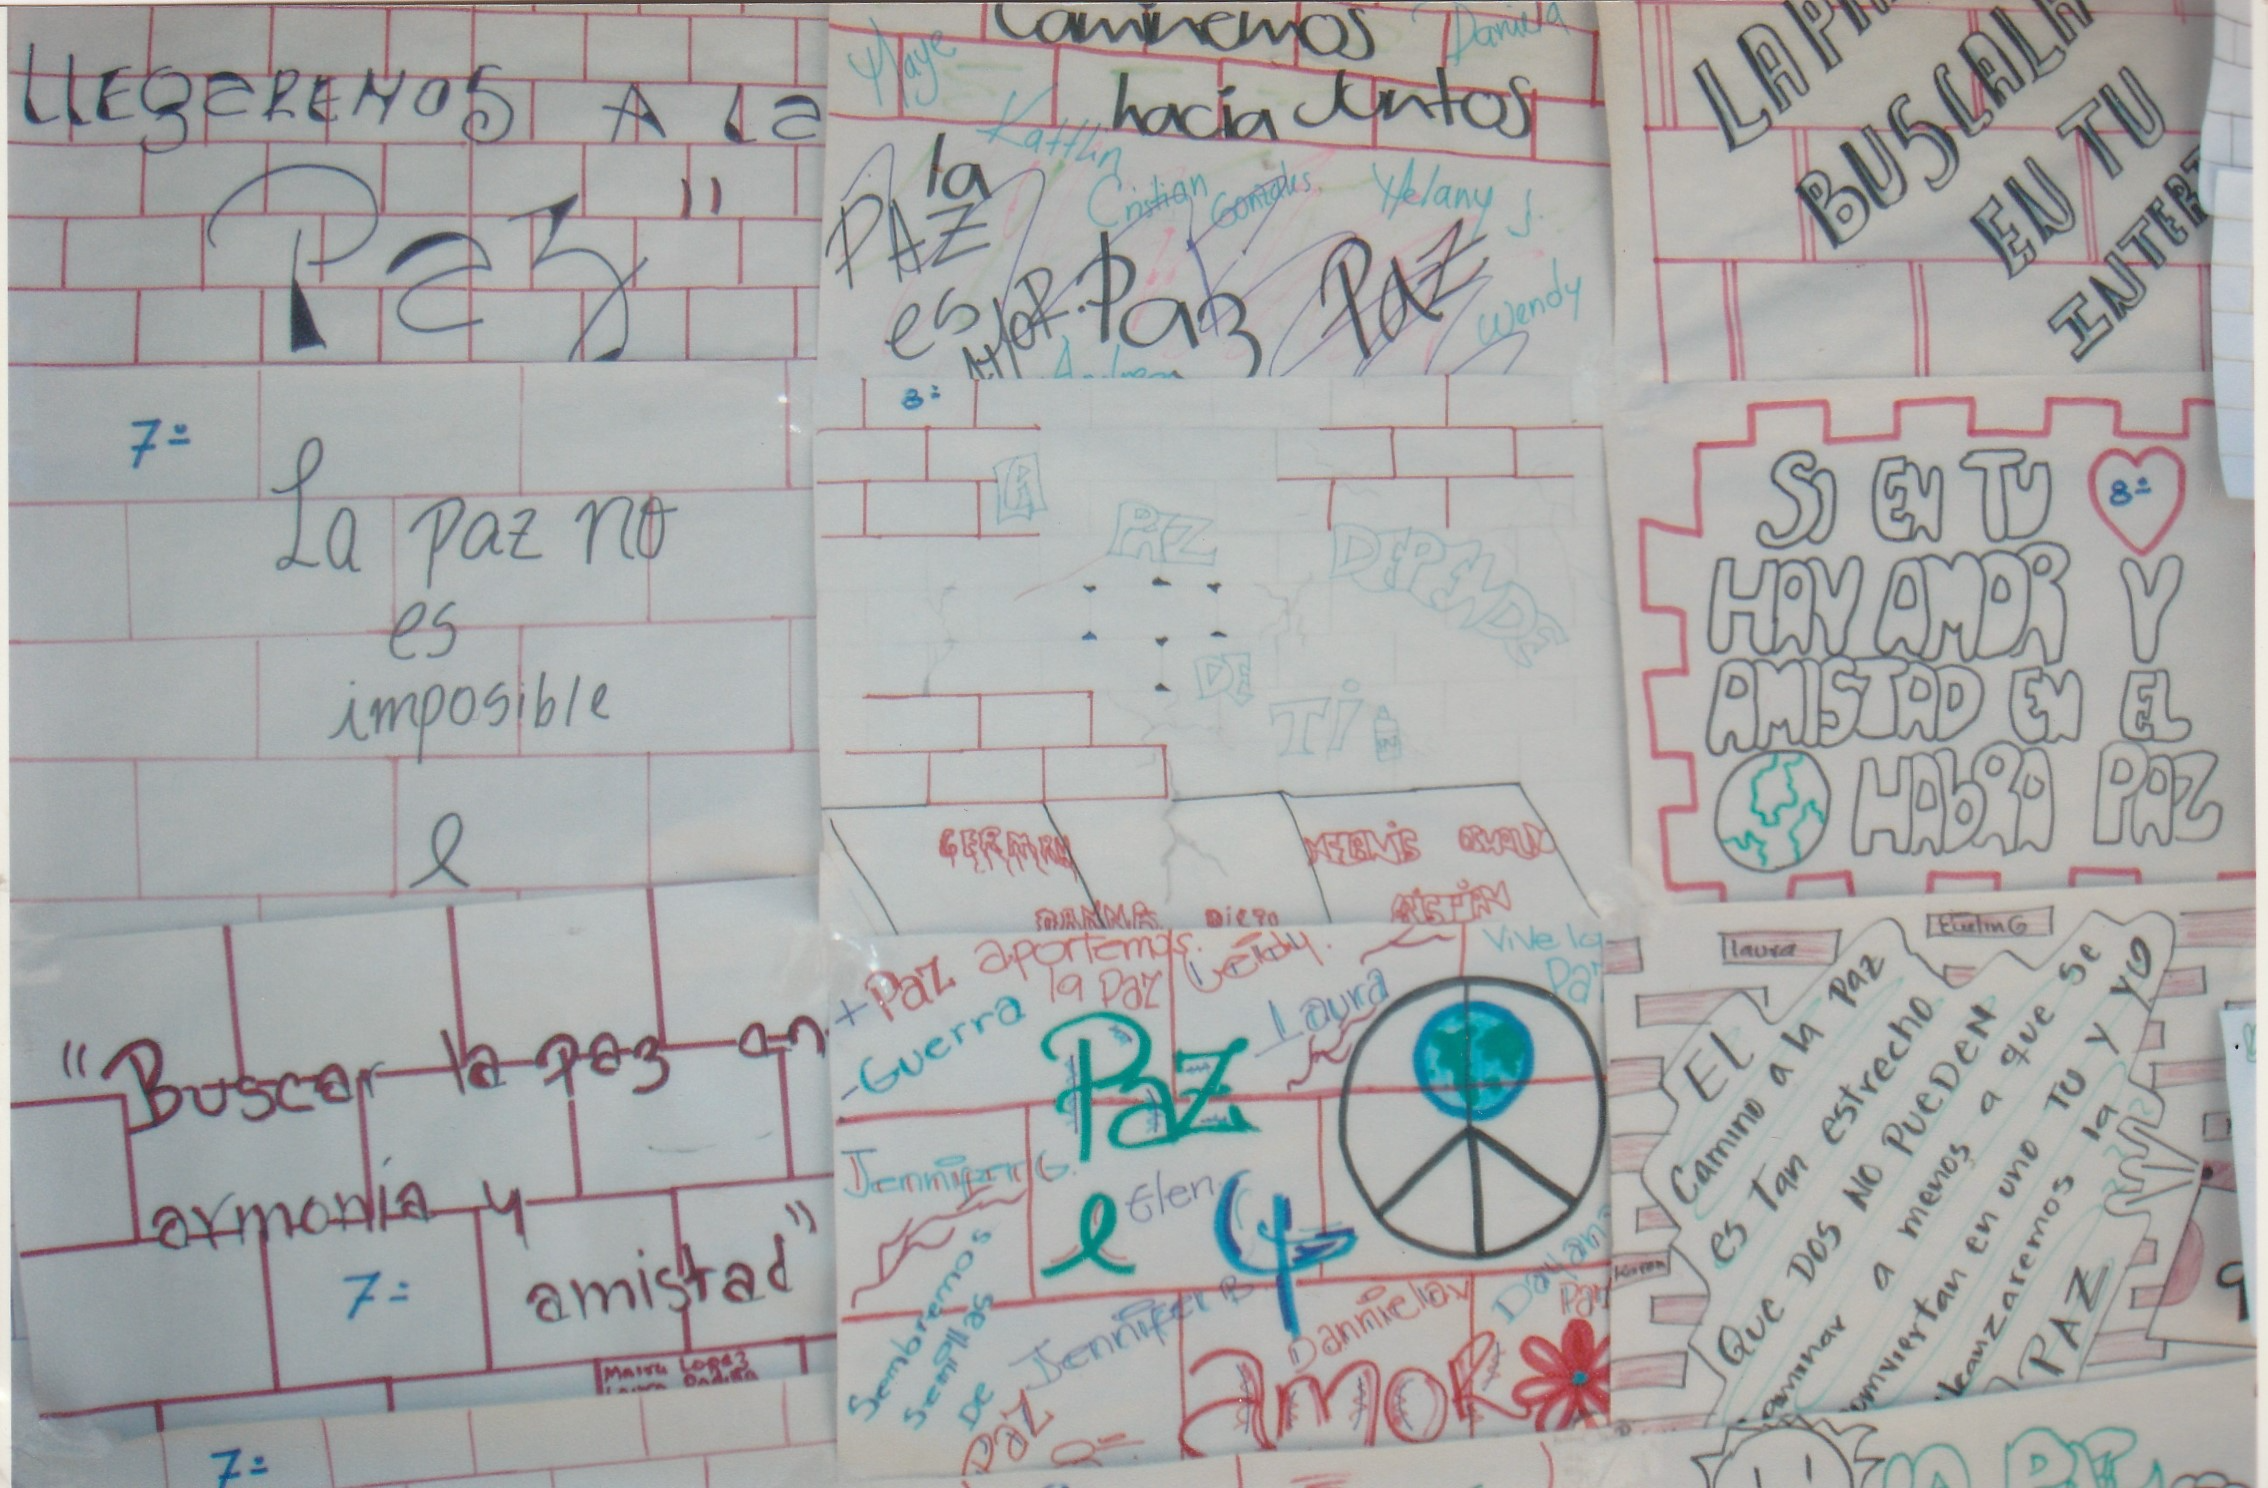 LLEGAREMOS A LA
Paz"
Caminemos
Daniela
Maye
hacia Juntos
Katthin
la
Cristian Gonzales
Yelany J.
PAZ
es AMOR. Paz PAZ
Wendy
LA PA
BUSCALA
EN TU
INTERI
7=
La paz no
es
imposible
8=
LA
PAZ
DEPENDE
DE
TI
GERMAN
CRISTIAN
DIEGO
SI EN TU 8=
HAY AMOR Y
AMISTAD EN EL
HABRA PAZ
"Buscar la paz en
armonía y
7= amistad"
Maira Lopez
7=
+ Paz aportemos
la paz
Leidy.
Vive la
Paz
- Guerra
Laura
Paz
Jennifer G.
Elen
Sembremos
semillas
De
Paz
Jennifer B.
Dannielav
Dayana
amor
laura
Evelin G
Karen
EL
Camino a la Paz
es Tan estrecho
Que DOS NO PUEDEN
caminar a menos a que se
conviertan en uno TU y YO
alcanzaremos la
PAZ
9